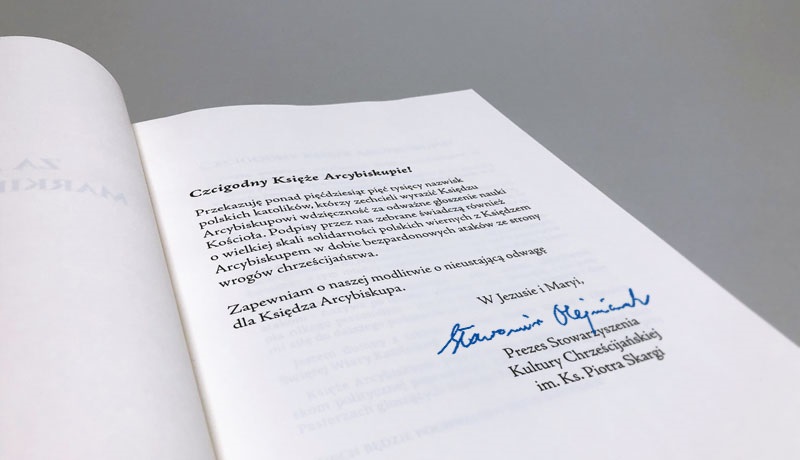 Czcigodny Księże Arcybiskupie!
Przekazuję ponad pięćdziesiąt pięć tysięcy nazwisk
polskich katolików, którzy zechcieli wyrazić Księdzu
Arcybiskupowi wdzięczność za odważne głoszenie nauki
Kościoła. Podpisy przez nas zebrane świadczą również
o wielkiej skali solidarności polskich wiernych z Księdzem
Arcybiskupem w dobie bezpardonowych ataków ze strony
wrogów chrześcijaństwa.
Zapewniam o naszej modlitwie o nieustającą odwagę
dla Księdza Arcybiskupa.
W Jezusie i Maryi,
Sławomir Olejniczak
Prezes Stowarzyszenia
Kultury Chrześcijańskiej
im. Ks. Piotra Skargi